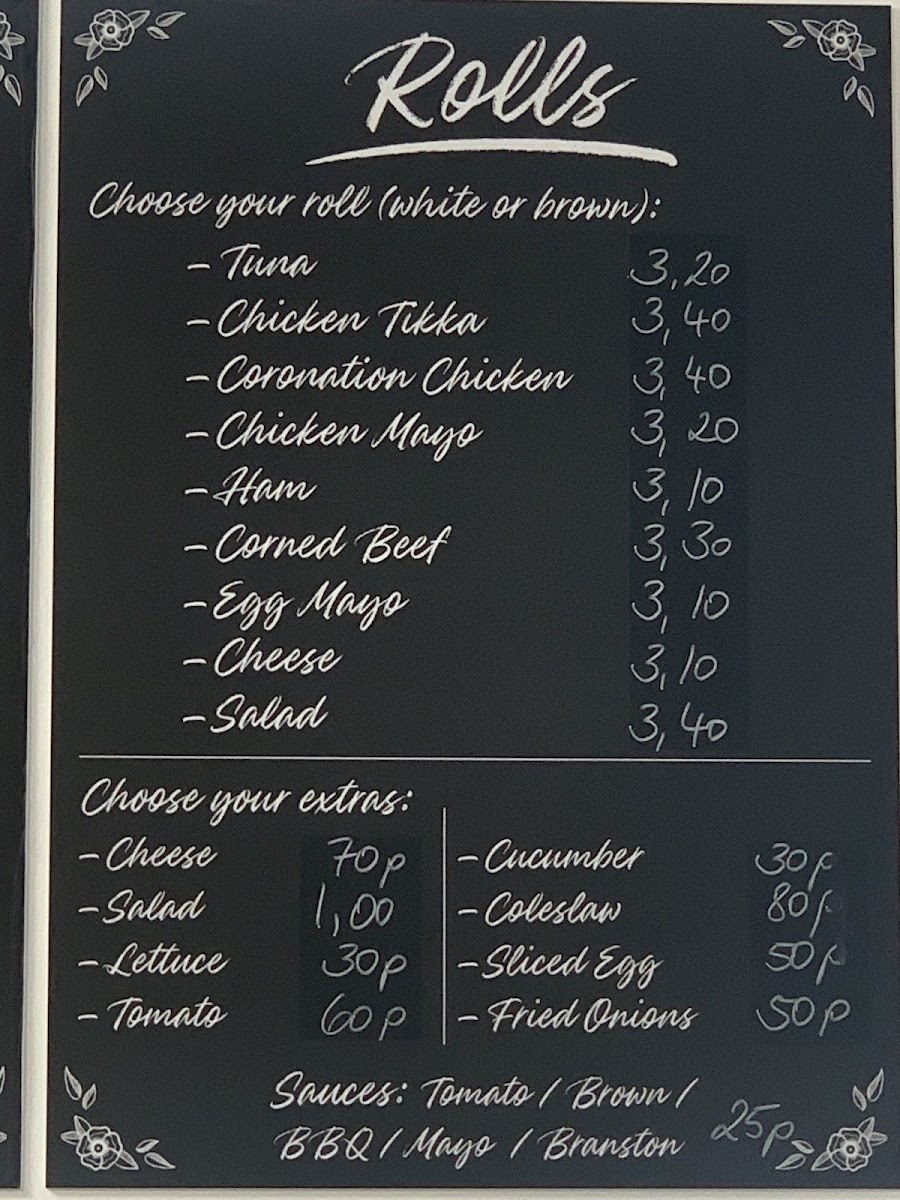 Rolls
Choose your roll (white or brown):
- Tuna 3,20
- Chicken Tikka 3,40
- Coronation Chicken 3,40
- Chicken Mayo 3,20
- Ham 3,10
- Corned Beef 3,30
- Egg Mayo 3,10
- Cheese 3,10
- Salad 3,40
Choose your extras:
- Cheese 70p
- Salad 1,00
- Lettuce 30p
- Tomato 60p
- Cucumber 30p
- Coleslaw 80p
- Sliced Egg 50p
- Fried Onions 50p
Sauces: Tomato / Brown /
BBQ / Mayo / Branston 25p